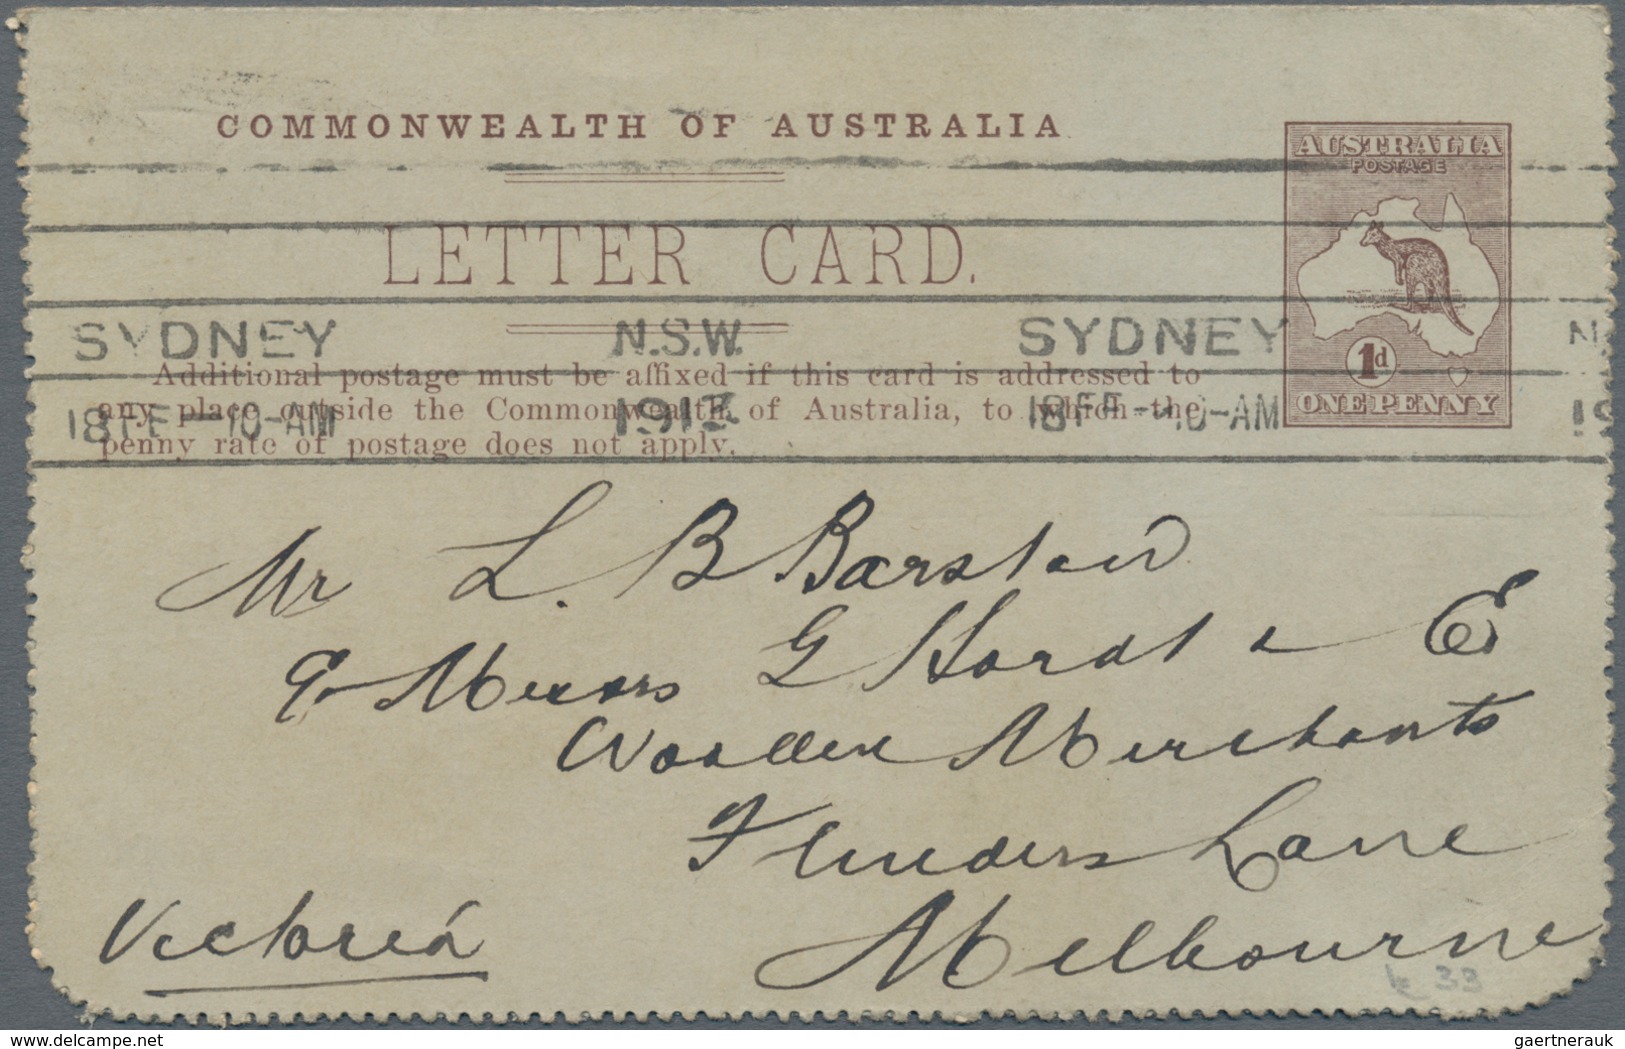 COMMONWEALTH OF AUSTRALIA
AUSTRALIA
POSTAGE
LETTER CARD.
SYDNEY N.S.W. SYDNEY N
Additional postage must be affixed if this card is addressed to
1d
any place outside the Commonwealth of Australia, to which the
ONE PENNY
18 FE 10-AM 18 FE 10-AM 19
penny rate of postage does not apply.
Mr L. B Barstow
G Hordt &
Woollen Merchants
Flinders Lane
Victoria
Melbourne
33
delcampe.net
gaertnerauk